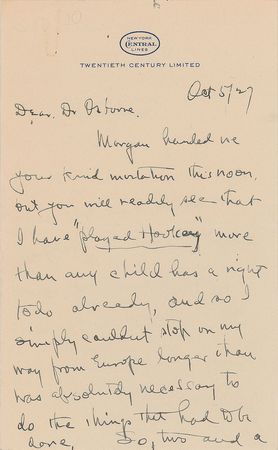 NEW YORK
CENTRAL
LINES
TWENTIETH CENTURY LIMITED
Oct 5/27
Dear Dr Osborne.
Morgan handed me
your kind invitation this noon.
but you will readily see that
I have "played Hookey" more
than any child has a right
to do already, and so I
simply couldn't stop on my
way from Europe longer than
was absolutely necessary to
do the things that had to be
done. So, two and a